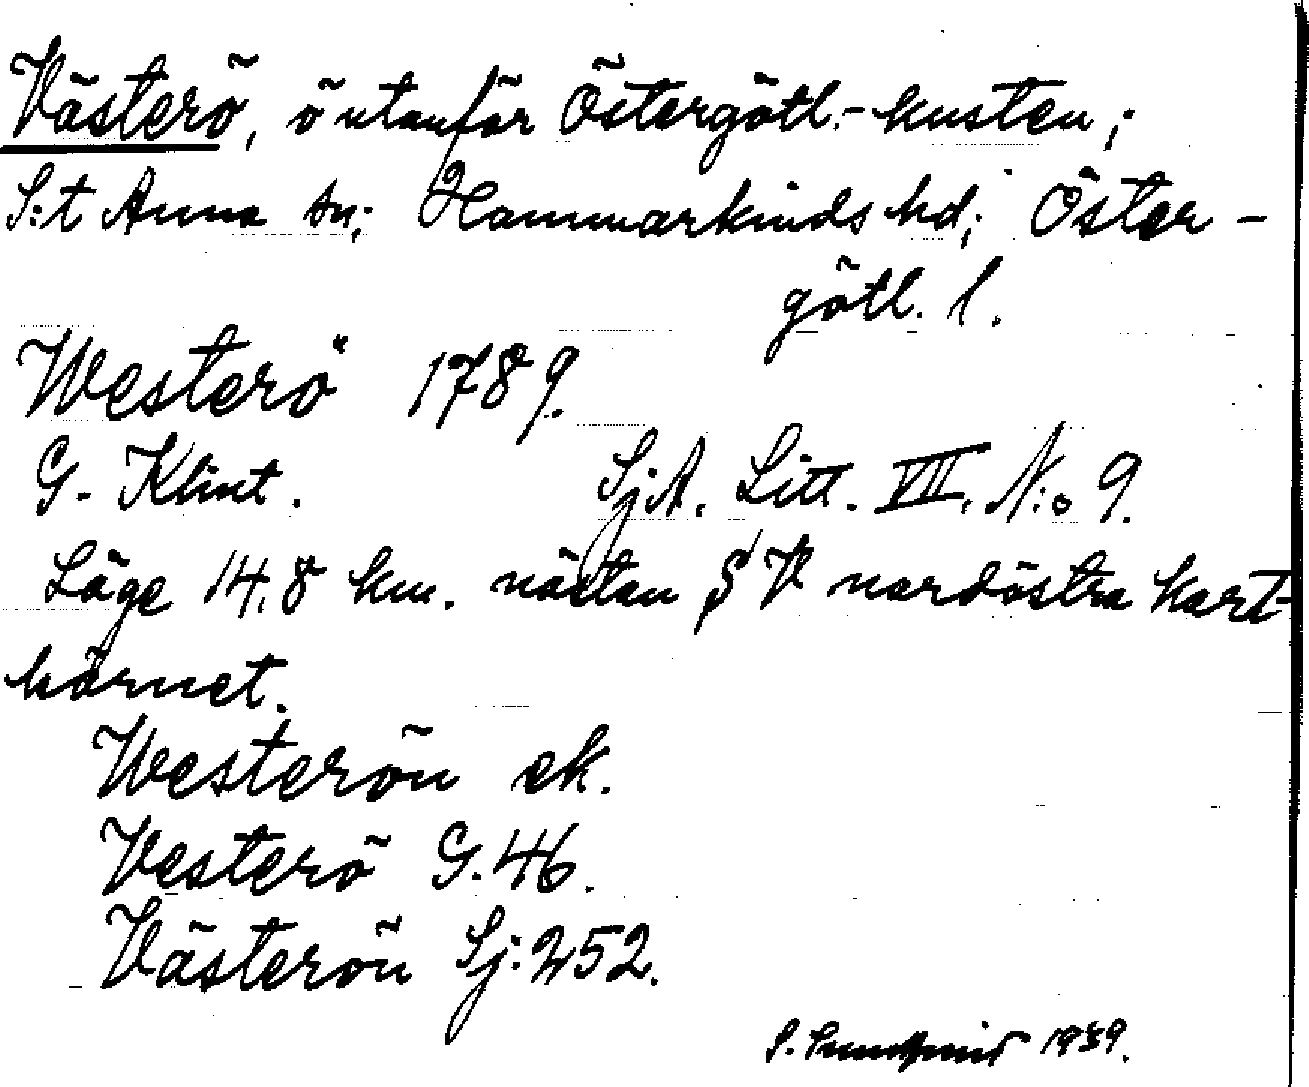 Västerö, ö utanför Östergötl.-kusten;
S:t Anna sn; Hammarkinds hd; Öster-
götl. l.
Westerö 1789.
G. Klint. SjA. Litt. VII. N:o 9.
Läge 14,8 km. nästan S V nordöstra kart-
hörnet.
Westerön ek.
Vesterö G.46.
Västerön Sj:252.
S. Sundqvist 1939.